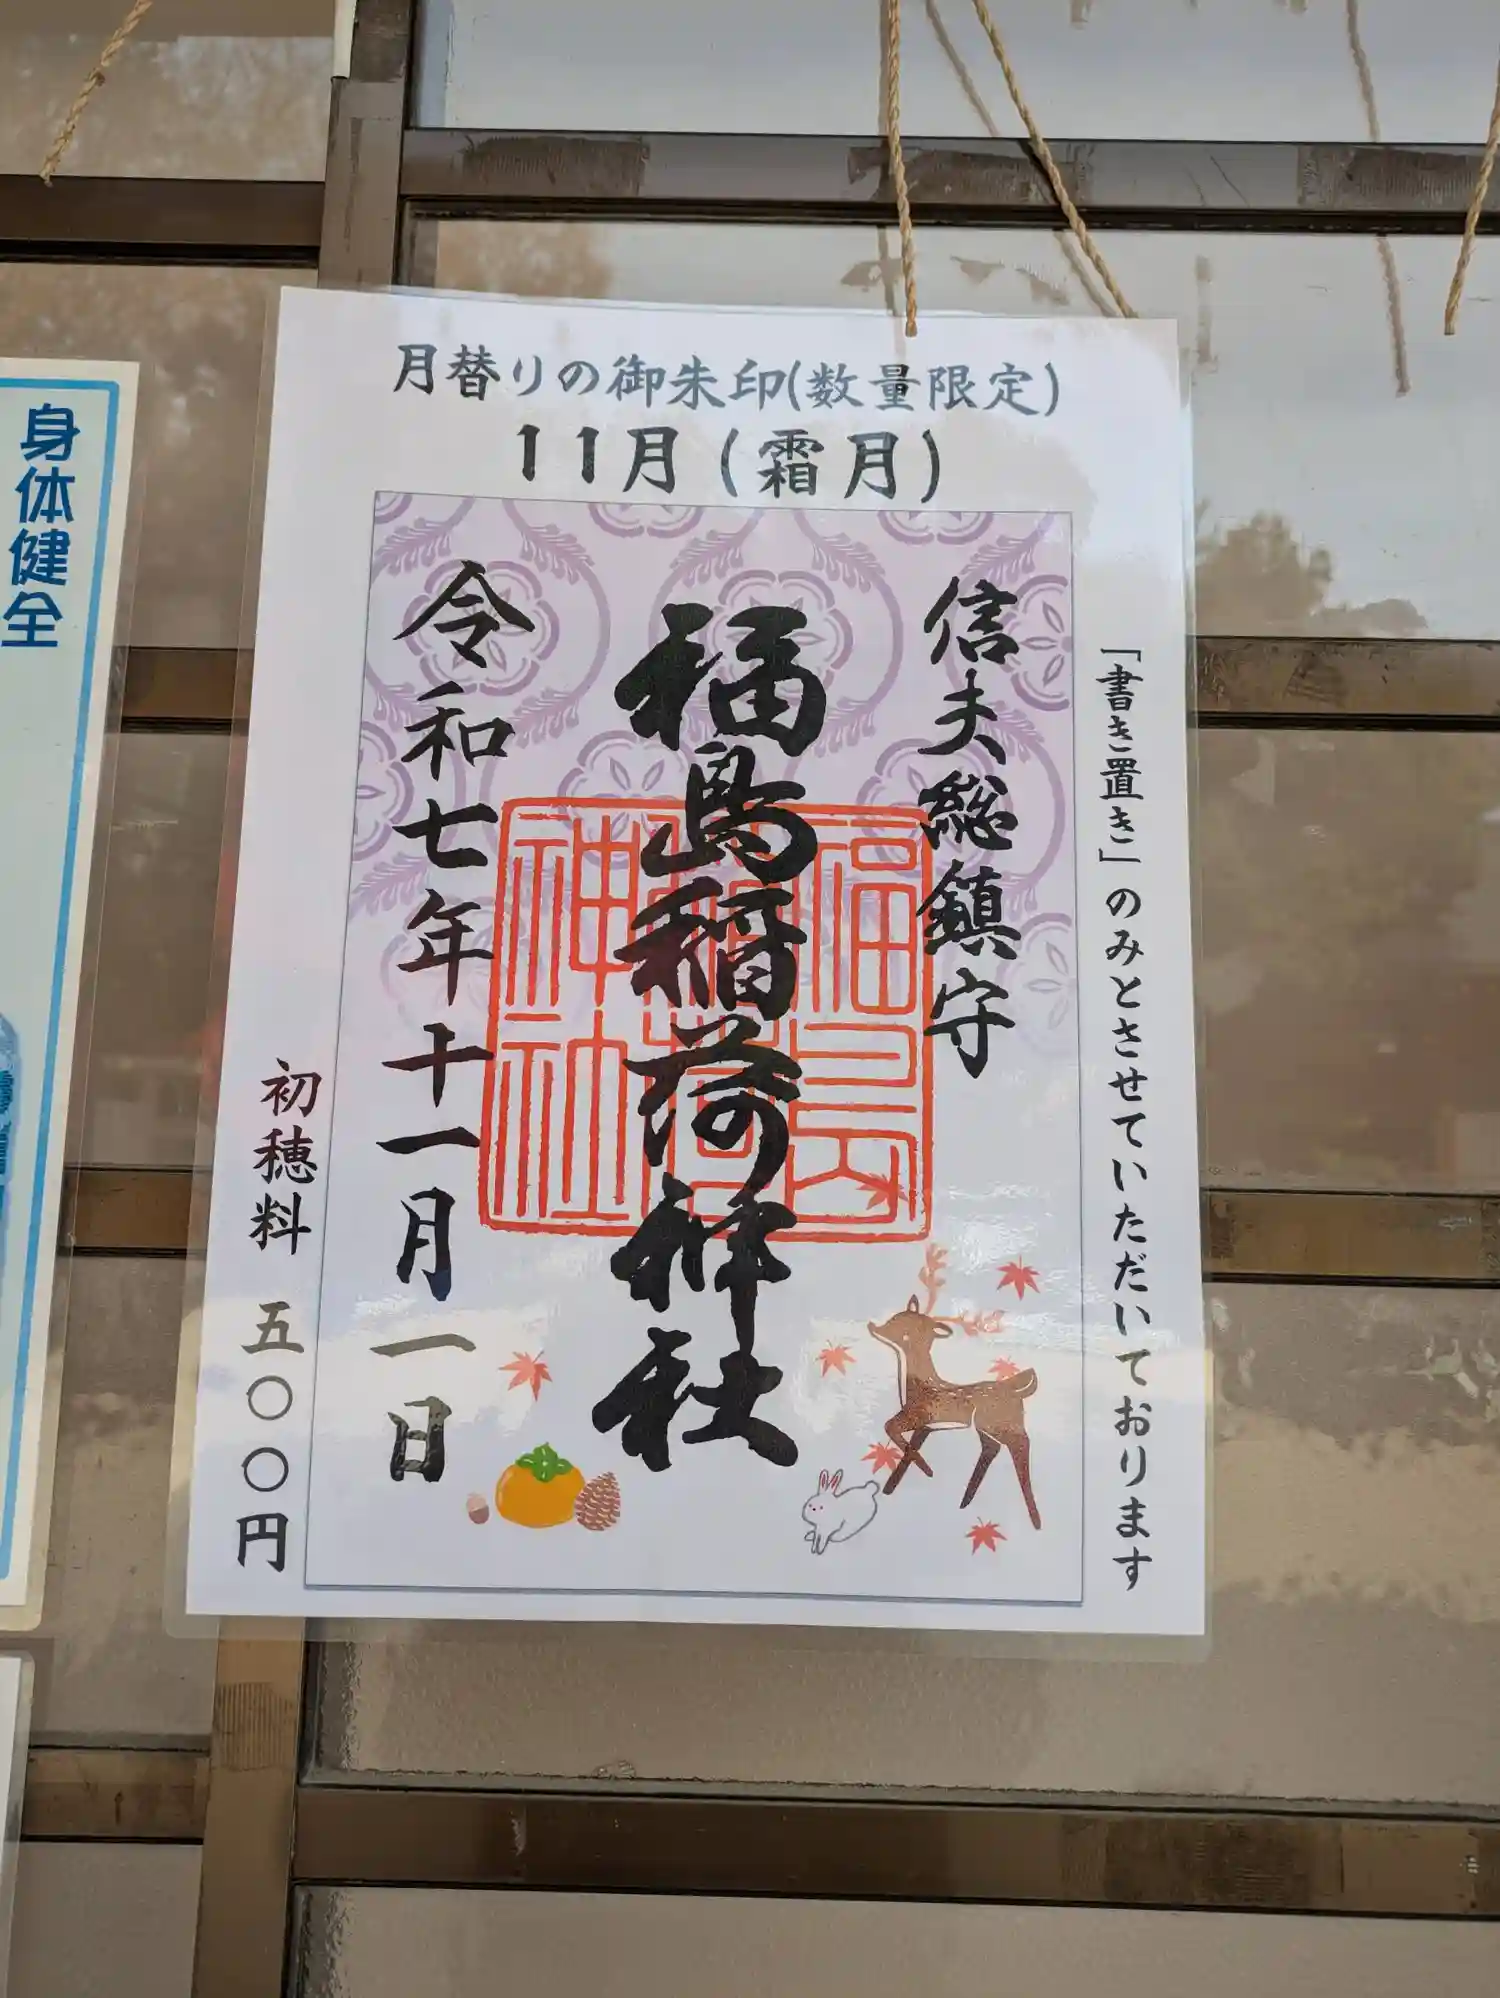 月替りの御朱印(数量限定)
11月(霜月)
「書き置き」のみとさせていただいております
信夫総鎮守
福島稲荷神社
令和七年十一月一日
初穂料 五〇〇円
福島
稲荷
神社
身体健全